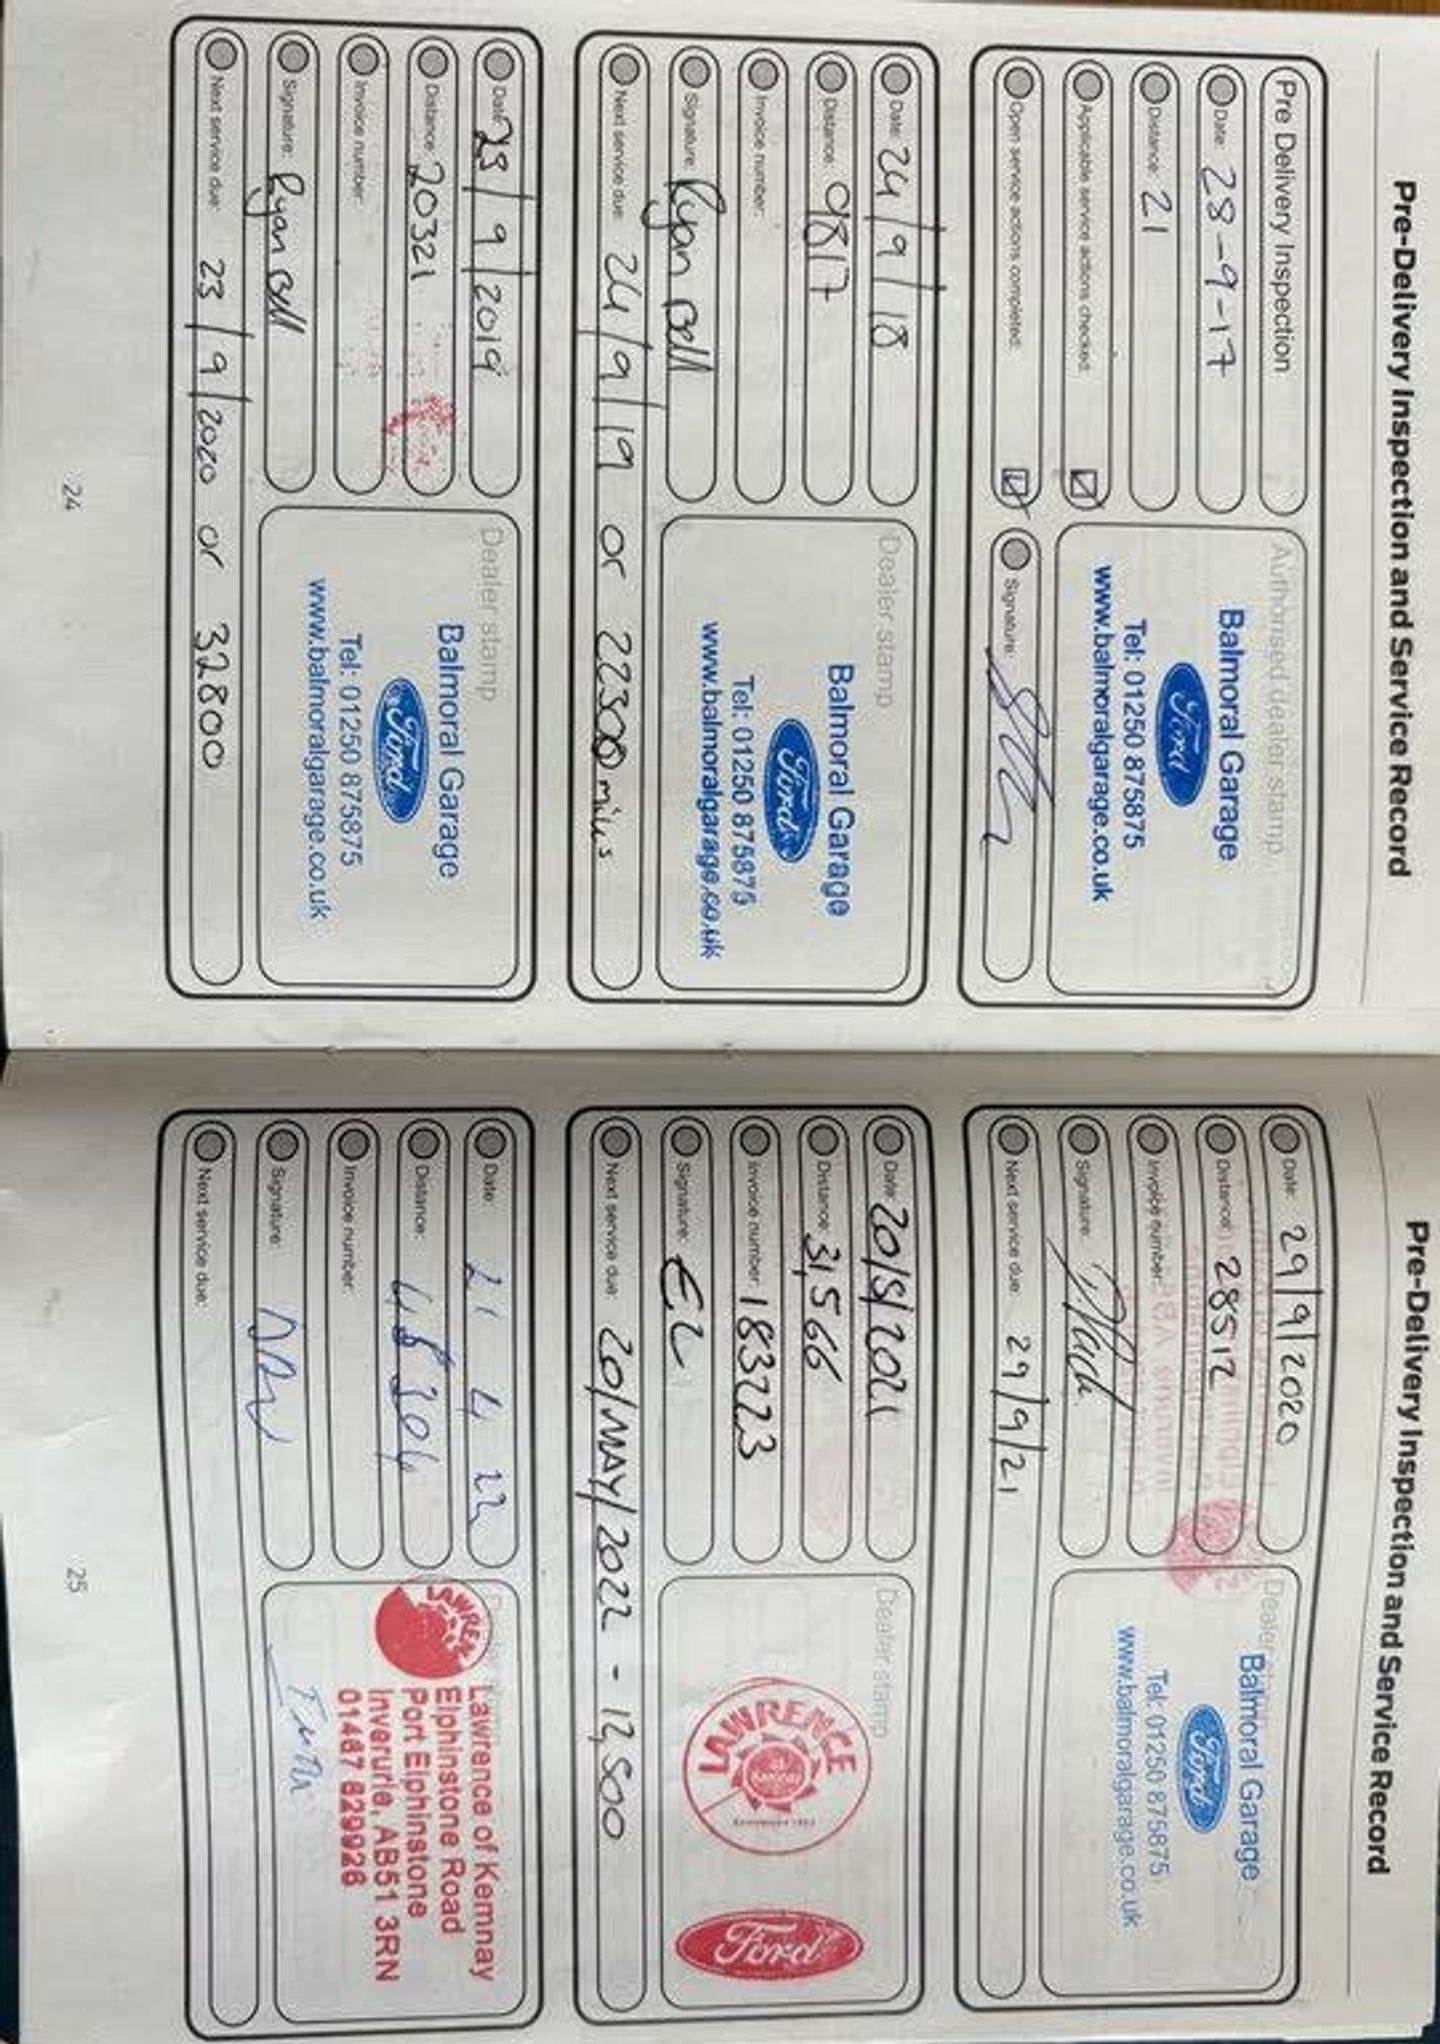 Pre-Delivery Inspection and Service Record
Pre Delivery Inspection
Date: 28-9-17
Distance: 21
Applicable service actions checked:
Open service actions completed:
Authorised dealer stamp
Balmoral Garage
Ford
Tel: 01250 875875
www.balmoralgarage.co.uk
Signature:
Date: 24/9/18
Distance: 9817
Invoice number:
Signature: Ryan Bell
Next service due: 24/9/19 or 22300 miles
Dealer stamp
Balmoral Garage
Ford
Tel: 01250 875875
www.balmoralgarage.co.uk
Date: 23/9/2019
Distance: 20321
Invoice number:
Signature: Ryan Bell
Next service due: 23/9/2020 or 32800
Dealer stamp
Balmoral Garage
Ford
Tel: 01250 875875
www.balmoralgarage.co.uk
24
Pre-Delivery Inspection and Service Record
Date: 29/9/2020
Distance: 28512
Invoice number:
Signature:
Next service due: 29/9/21
Dealer
Balmoral Garage
Ford
Tel: 01250 875875
www.balmoralgarage.co.uk
Date: 20/5/2021
Distance: 31,566
Invoice number: 183223
Signature: EL
Next service due: 20/MAY/2022 - 12,500
Dealer stamp
LAWRENCE
Ford
Date: 21 4 22
Distance:
Invoice number:
Signature:
Next service due:
Lawrence of Kemnay
Elphinstone Road
Port Elphinstone
Inverurie, AB51 3RN
01467 629926
25